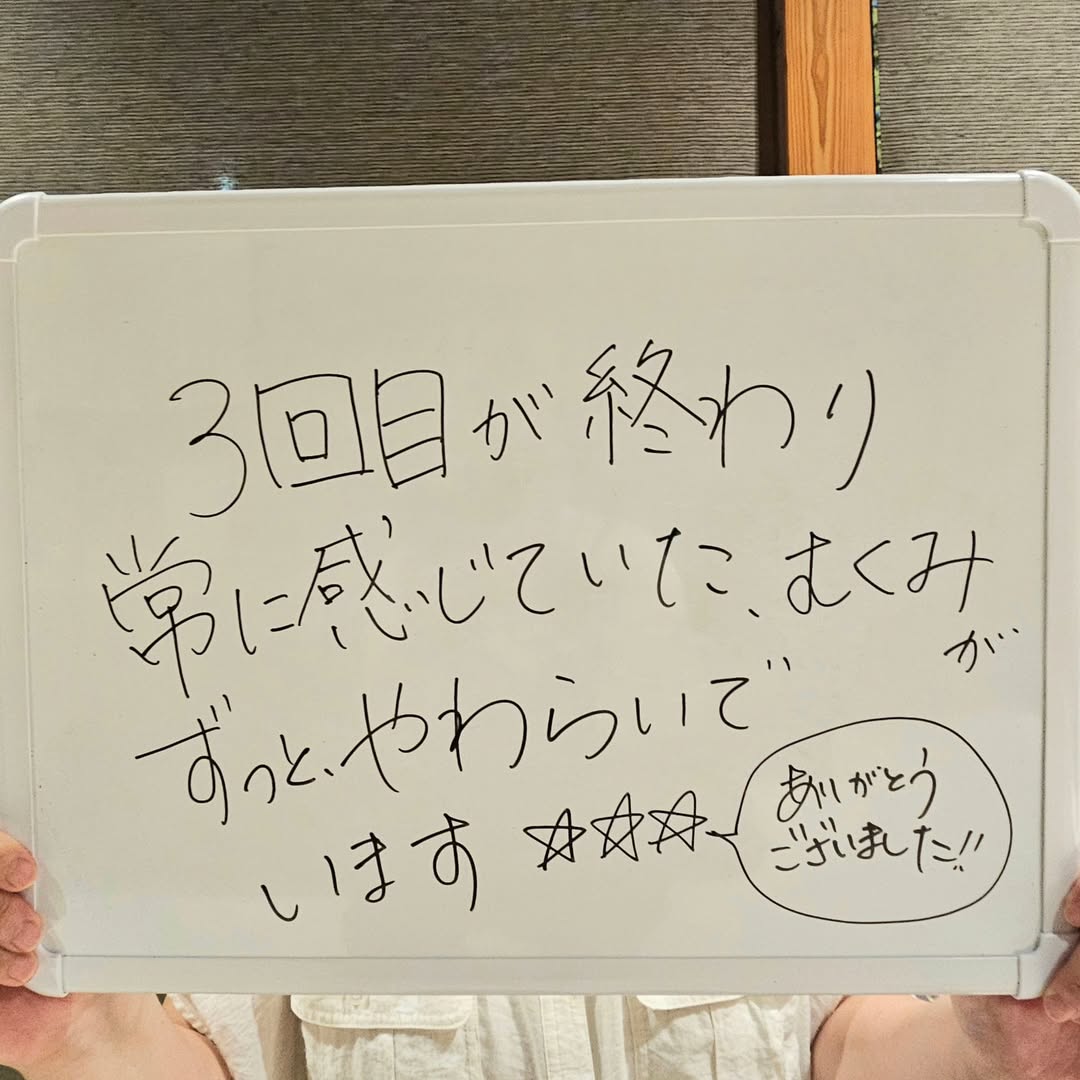 3回目が終わり
常に感じていた、むくみ
が
ずっと、やわらいで
います ☆☆☆
ありがとう
ございました!!